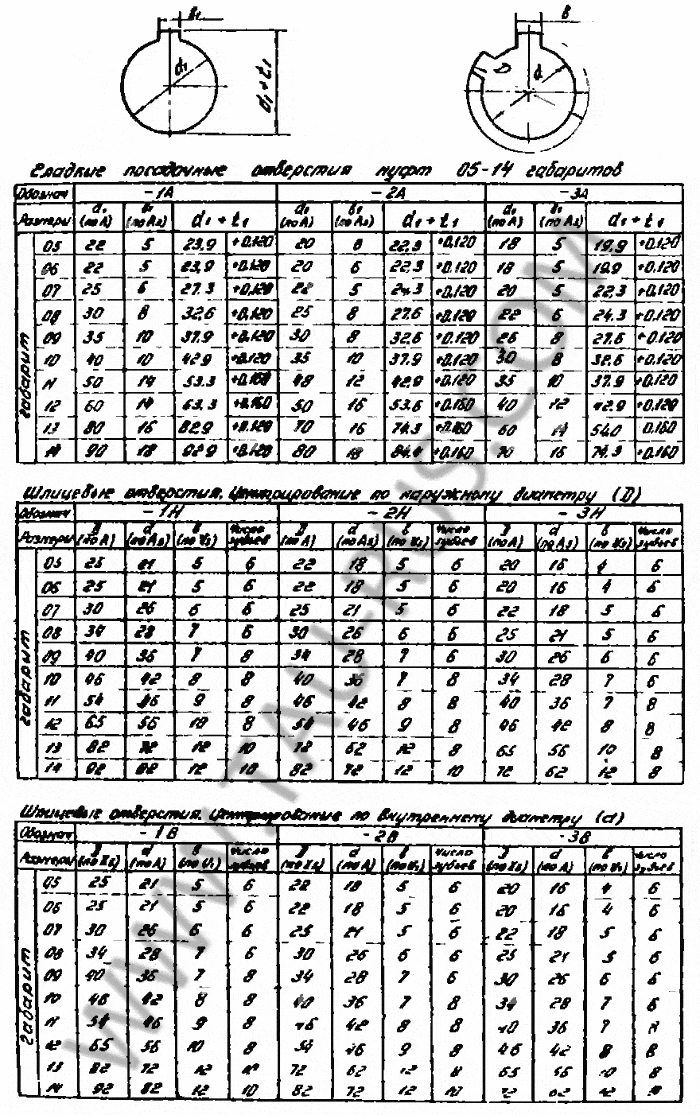 в₁ в
d₁ d₁ + t₁ D d
Гладкие посадочные отверстия муфт 05-14 габаритов
Обознач -1А -2А -3А
Размеры d₁ (по А) в₁ (по А₃) d₁ + t₁ d₁ (по А) в₁ (по А₃) d₁ + t₁ d₁ (по А) в₁ (по А₃) d₁ + t₁
габарит
05 22 5 23,9 +0.120 20 22,3 +0.120 18 5 19.9 +0.120
06 22 5 23,9 +0.120 20 6 22.3 +0.120 18 5 19.9 +0.120
07 25 6 27.3 +0.120 22 5 24.3 +0.120 20 5 22.3 +0.120
08 30 8 32.6 +0.120 25 8 27.6 +0.120 22 6 24.3 +0.120
09 35 10 37.9 +0.120 30 8 32.6 +0.120 26 8 27.6 +0.120
10 40 10 42.9 +0.120 35 10 37.9 +0.120 30 8 32.6 +0.120
11 50 14 53.3 +0.160 12 42.9 +0.120 35 10 37.9 +0.120
12 60 14 63.3 +0.160 50 16 53.6 +0.160 40 12 42.9 +0.120
13 80 16 82.9 +0.120 70 16 74.3 +0.160 60 14 54.0 0.160
14 90 18 92.9 +0.120 80 18 84.4 +0.160 70 16 74.3 +0.160
Шлицевые отверстия. Центрирование по наружному диаметру (D)
Обознач -1Н -2Н -3Н
Размеры D (по А) d (по А₃) в (по U₃) Число зубьев D (по А) d (по А₃) в (по U₃) Число зубьев D (по А) d (по А₃) в (по U₃) Число зубьев
габарит
05 25 21 5 6 22 18 5 6 20 16 4 6
06 25 21 5 6 22 18 5 6 20 16 4 6
07 30 26 6 6 25 21 5 6 22 18 5 6
08 34 28 7 6 30 26 6 6 25 21 5 6
09 40 36 7 8 34 28 7 6 30 26 6 6
10 46 42 8 8 40 36 7 8 34 28 7 6
11 54 46 9 8 46 42 8 8 40 36 7 8
12 65 56 10 8 54 46 9 8 46 42 8 8
13 82 72 12 10 72 62 12 8 65 56 10 8
14 92 82 12 10 82 72 12 10 72 62 12 8
Шлицевые отверстия. Центрирование по внутреннему диаметру (d)
Обознач -1В -2В -3В
Размеры D (по Х₅) d (по А) в (по U₁) Число зубьев D (по Х₅) d (по А) в (по U₁) Число зубьев D (по Х₅) d (по А) в (по U₁) Число зубьев
габарит
05 25 21 5 6 22 18 5 6 20 16 4 6
06 25 21 5 6 22 18 5 6 20 16 4 6
07 30 26 6 6 25 21 5 6 22 18 5 6
08 34 28 7 6 30 26 6 6 25 21 5 6
09 40 36 7 8 34 28 7 6 30 26 6 6
10 46 42 8 8 40 36 7 8 34 28 7 6
11 54 46 9 8 46 42 8 8 40 36 7 8
12 65 56 10 8 54 46 9 8 46 42 8 8
13 82 72 12 10 72 62 12 8 65 56 10 8
14 92 82 12 10 82 72 12 10 72 62 12 8
WWW.TAU-RUS.COM